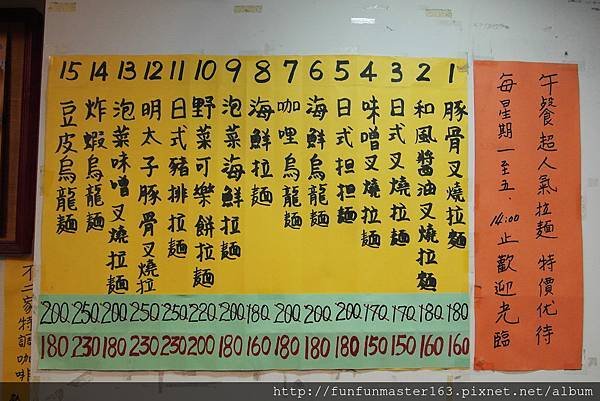 午餐超人氣拉麵 特價优待
每星期一至五. 14:00止歡迎光臨
1 豚骨叉燒拉麵 180 160
2 和風醬油叉燒拉麵 180. 160
3 日式叉燒拉麵 170. 150
4 味噌叉燒拉麵 170. 150
5 日式担担麵 200. 180
6 海鮮烏龍麵 200. 180
7 咖哩烏龍麵 200. 180
8 海鮮拉麵 180. 160
9 泡菜海鮮拉麵 200. 180
10 野菜可樂餅拉麵 220. 200
11 日式豬排拉麵 250. 230
12 明太子豚骨叉燒拉 250. 230
13 泡菜味噌叉燒拉麵 200. 180
14 炸蝦烏龍麵 250. 230
15 豆皮烏龍麵 200. 180
不二家特調咖啡
http://funfunmaster163.pixnet.net/album